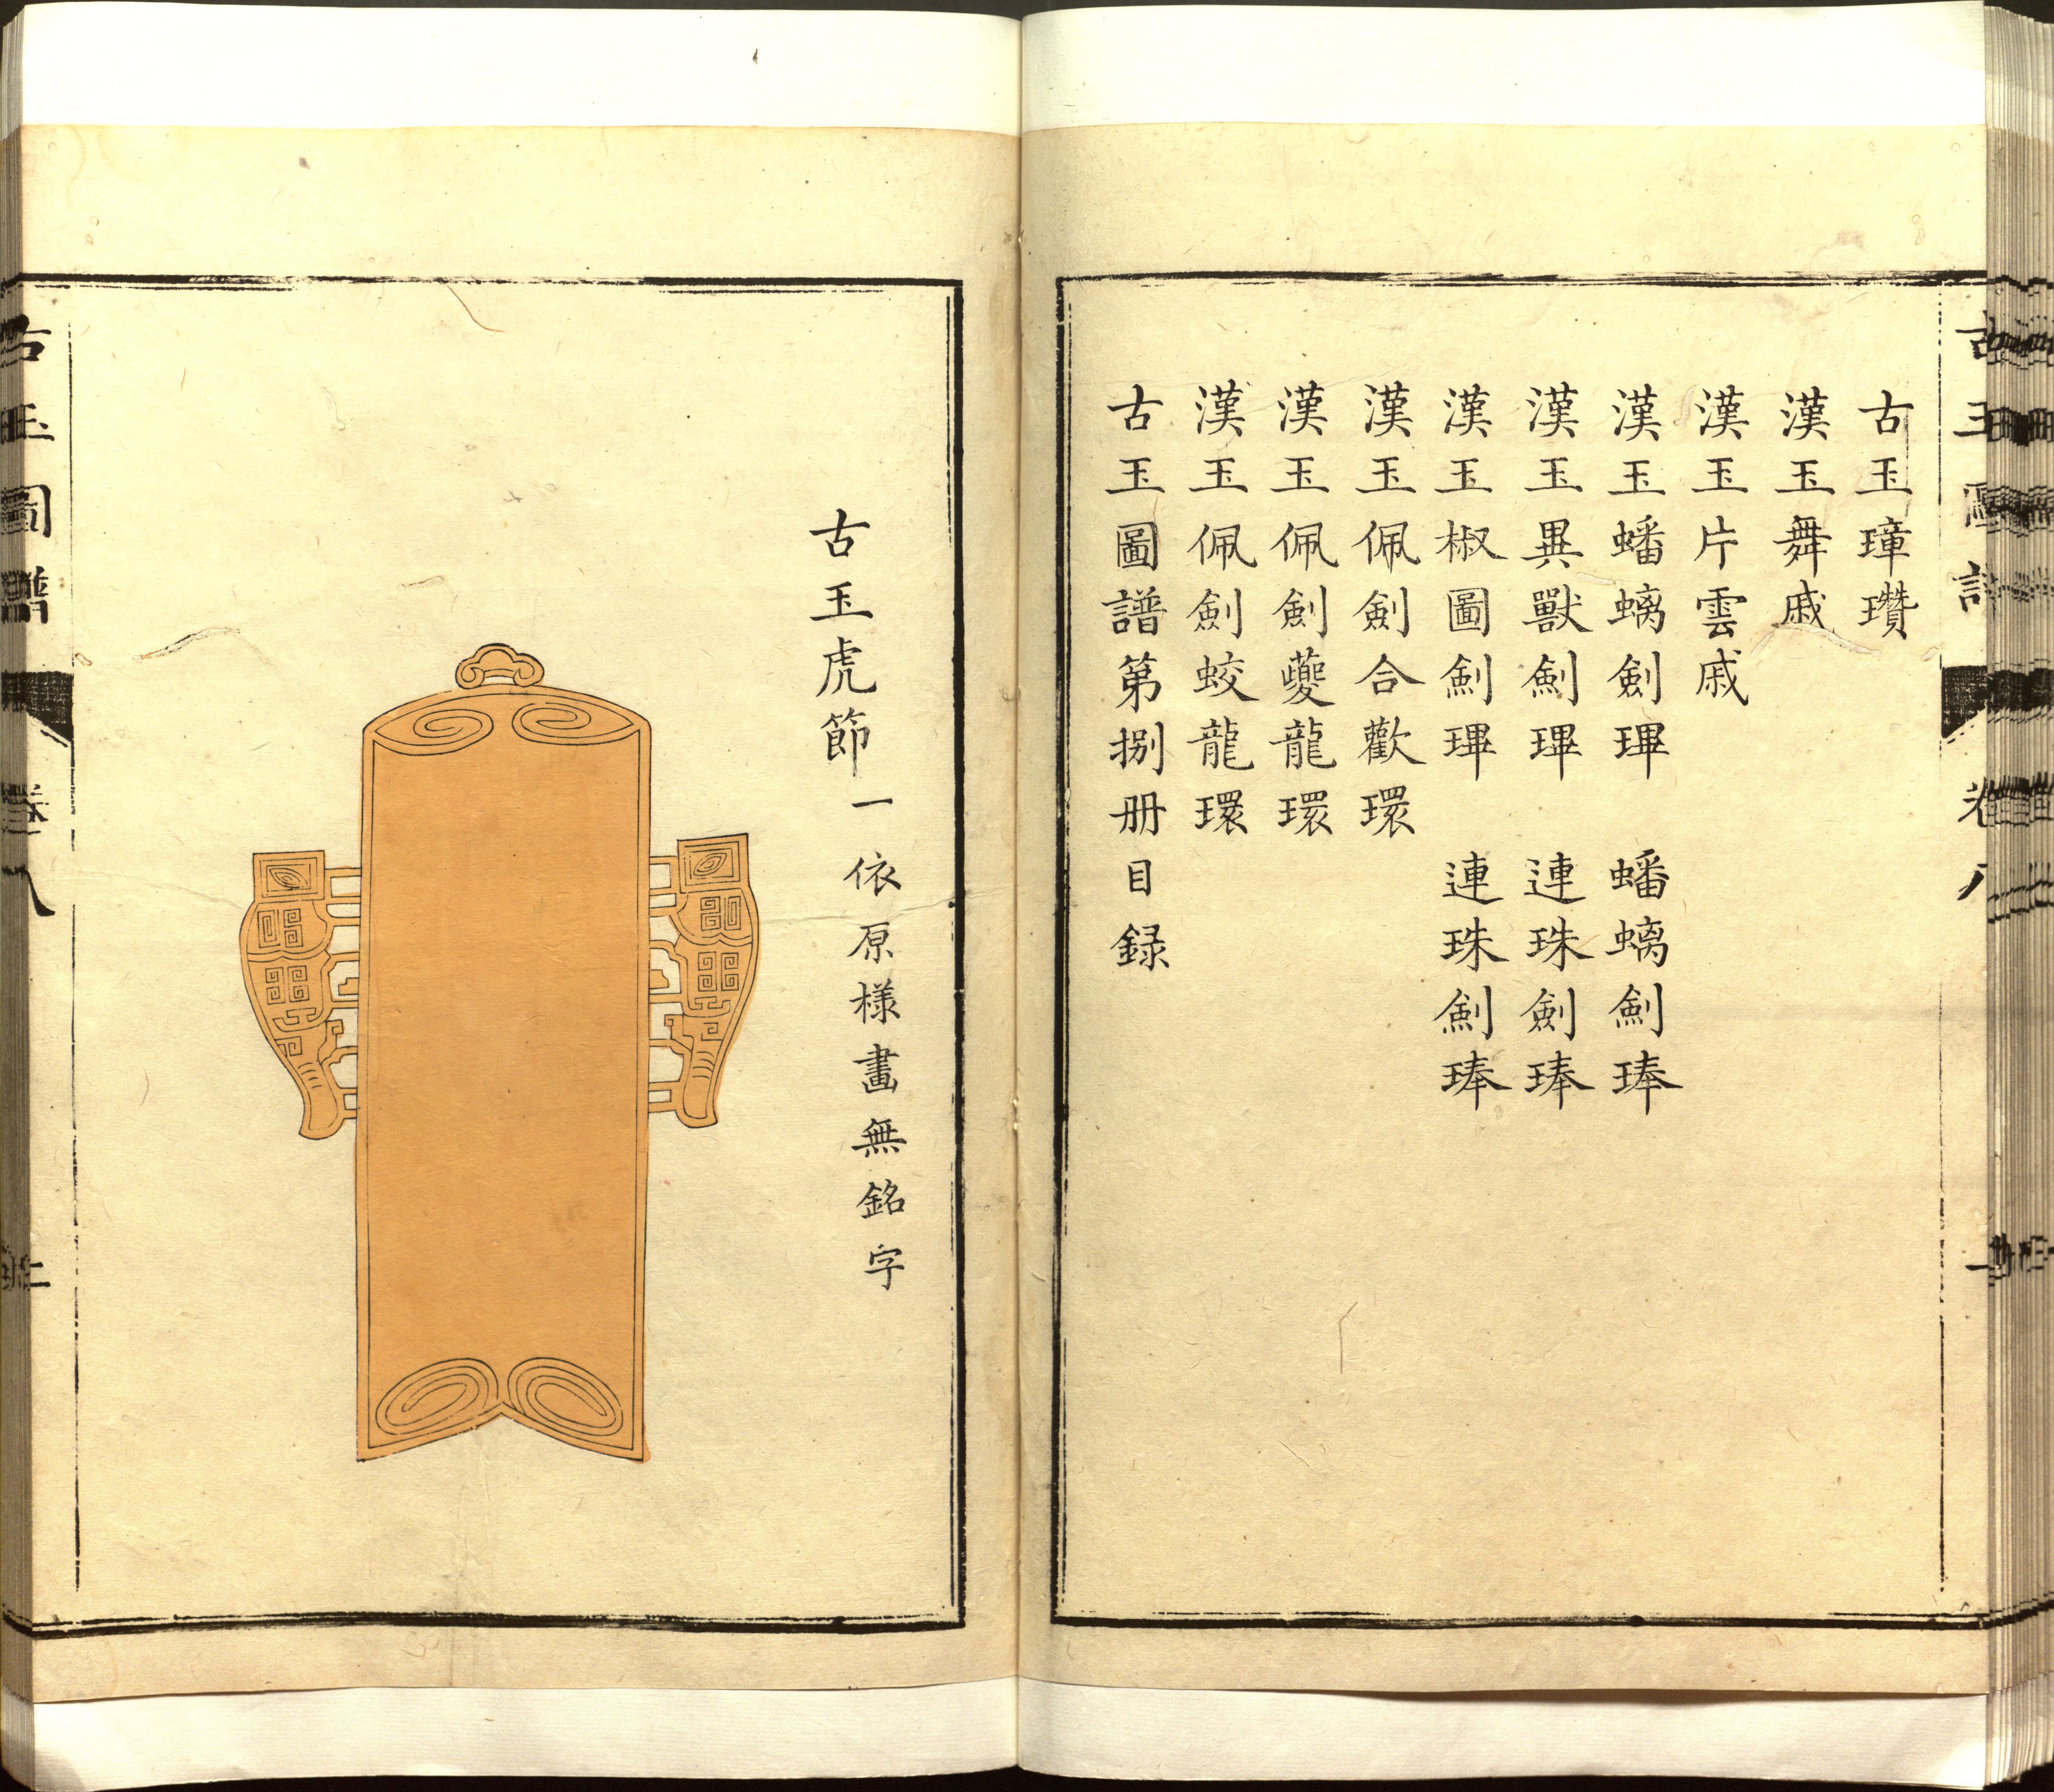 古玉璋瓚
漢玉舞戚
漢玉片雲戚
漢玉蟠螭劍琕 蟠螭劍琫
漢玉異獸劍琕 連珠劍琫
漢玉椒圖劍琕 連珠劍琫
漢玉佩劍合歡環
漢玉佩劍夔龍環
漢玉佩劍蛟龍環
古玉圖譜第捌冊目錄
古玉虎節一 依原樣畫無銘字
古玉圖譜 卷八